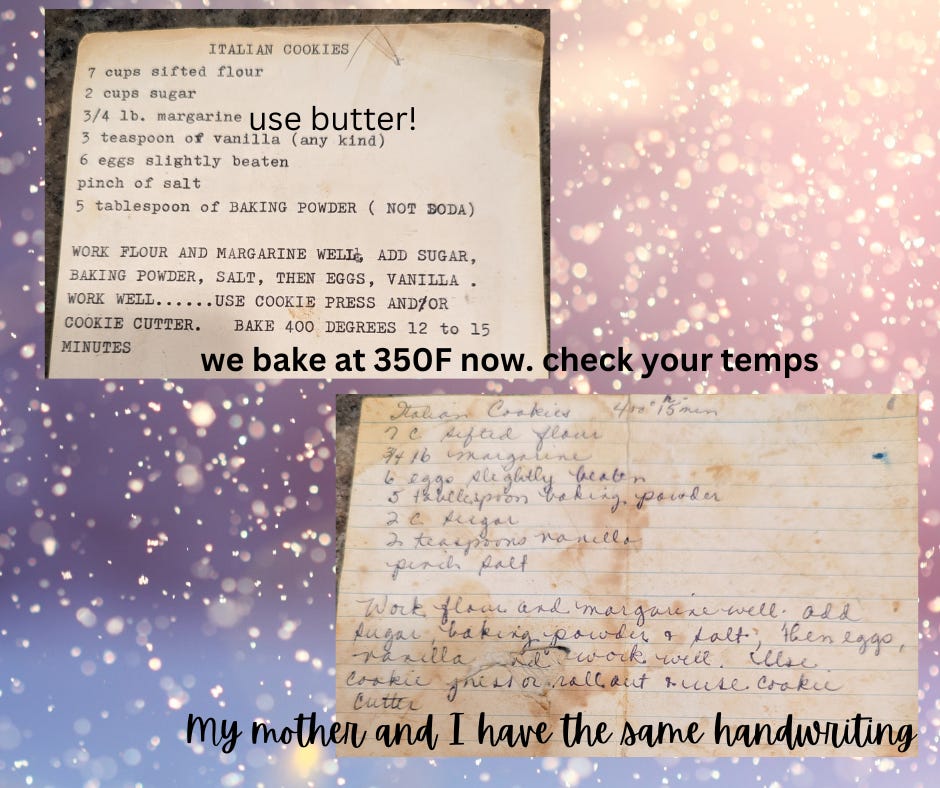 ITALIAN COOKIES
7 cups sifted flour
2 cups sugar
3/4 lb. margarine use butter!
3 teaspoon of vanilla (any kind)
6 eggs slightly beaten
pinch of salt
5 tablespoon of BAKING POWDER ( NOT SODA)
WORK FLOUR AND MARGARINE WELL, ADD SUGAR,
BAKING POWDER, SALT, THEN EGGS, VANILLA .
WORK WELL......USE COOKIE PRESS AND/OR
COOKIE CUTTER. BAKE 400 DEGREES 12 to 15
MINUTES
we bake at 350F now. check your temps
Italian Cookies 400° 15 min
7 C sifted flour
3/4 lb margarine
6 eggs slightly beaten
5 tablespoon baking powder
2 C sugar
2 teaspoons vanilla
pinch salt
Work flour and margarine well. add
sugar, baking powder & salt, then eggs,
vanilla and work well. Use
cookie press or roll out & use cookie
cutter
My mother and I have the same handwriting